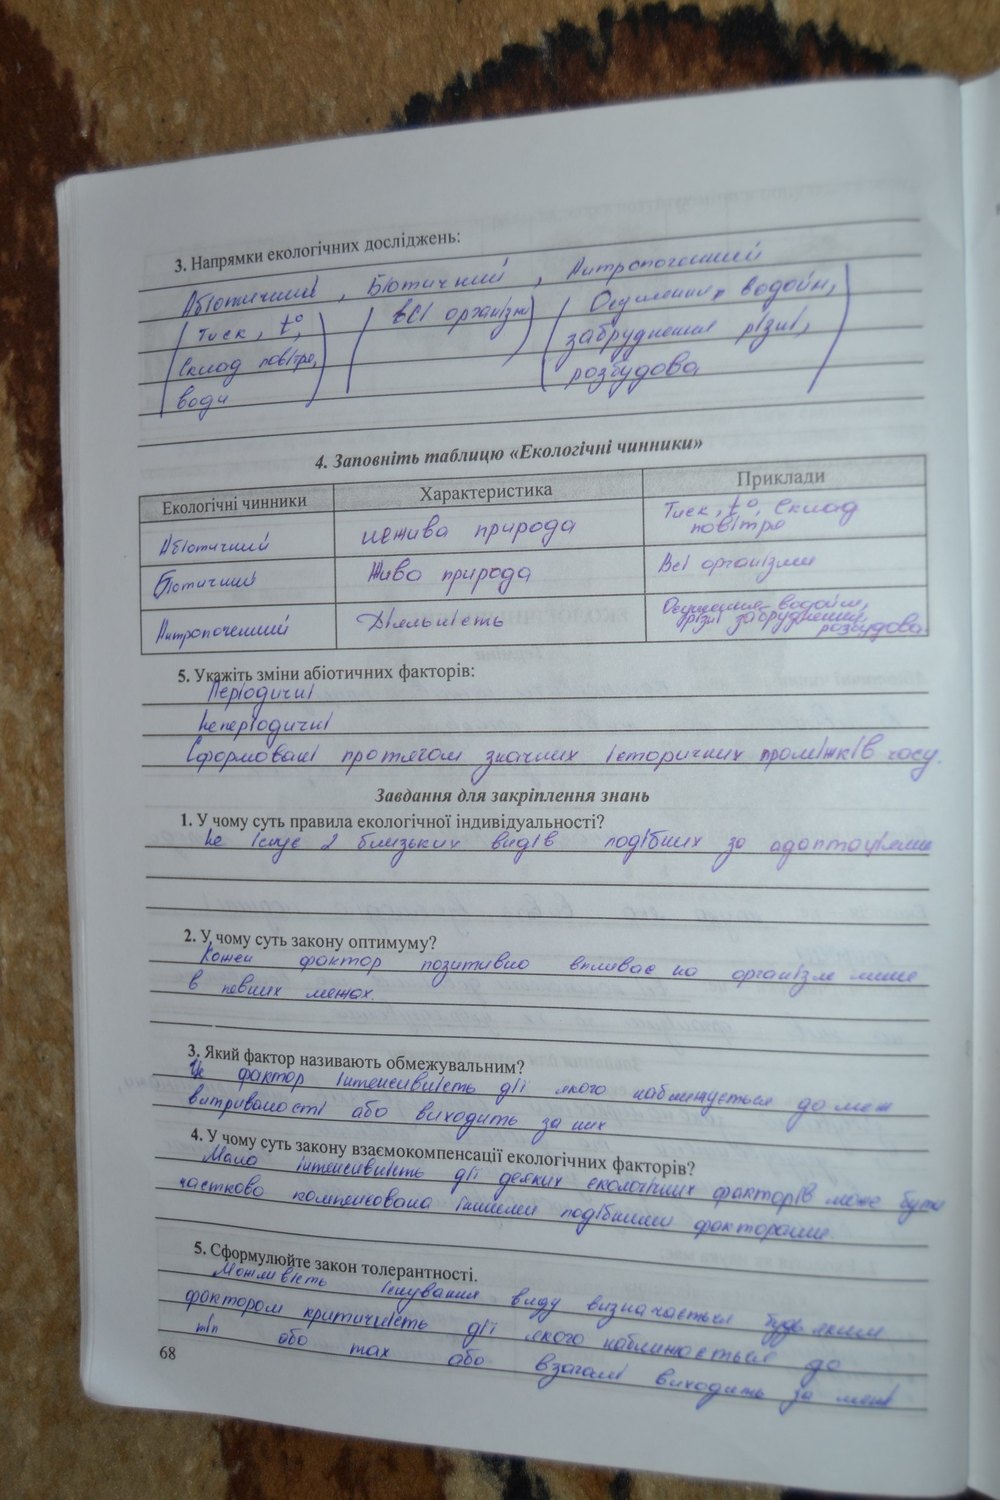 3. Напрямки екологічних досліджень:
Абіотичний, Біотичний, Антропогенний
(Тиск, t°, (всі організми) (Осушення водойм,
Склад повітря, забруднення різні,
води) розбудова)
4. Заповніть таблицю «Екологічні чинники»
Екологічні чинники Характеристика Приклади
Абіотичний нежива природа Тиск, t°, Склад повітря
Біотичний Жива природа Всі організми
Антропогенний Діяльність Осушення водойм, різні забруднення, розбудова
5. Укажіть зміни абіотичних факторів:
Періодичні
Неперіодичні
Сформовані протягом значних історичних проміжків часу.
Завдання для закріплення знань
1. У чому суть правила екологічної індивідуальності?
Не існує 2 близьких видів подібних за адаптаціями
2. У чому суть закону оптимуму?
Кожен фактор позитивно впливає на організм лише
в певних межах.
3. Який фактор називають обмежувальним?
Це фактор інтенсивність дії якого наближується до меж
витривалості або виходить за них
4. У чому суть закону взаємокомпенсації екологічних факторів?
Мала інтенсивність дії деяких екологічних факторів може бути
частково компенсована іншими подібними факторами.
5. Сформулюйте закон толерантності.
Можливість існування виду визначається будь яким
фактором критичність дії якого наближається до
min або max або взагалі виходить за межі
68